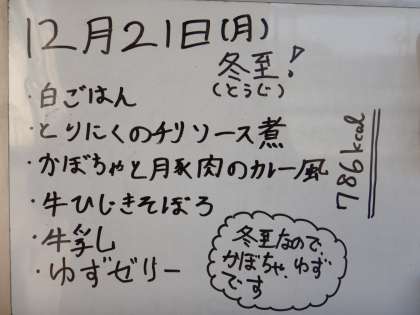 12月21日(月)
冬至!
(とうじ)
・白ごはん
・とりにくのチリソース煮
・かぼちゃと豚肉のカレー風
・牛ひじきそぼろ
・牛乳
・ゆずゼリー
786kcal
冬至なので、
かぼちゃ、ゆず
です